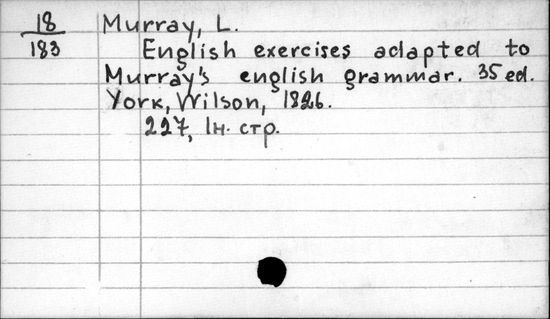 18 Murray, L.
183 English exercises adapted to
Murray's english grammar. 35 ed.
York, Wilson, 1826.
227, 1н. стр.